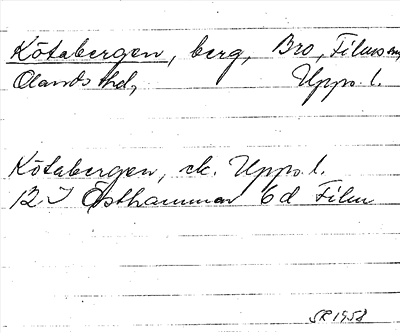 Kötabergen, berg, Bro, Films sn,
Olands hd, Upps. l.
Kötabergen, ek. Upps. l.
12 I Östhammar 6d Film
SR 1958